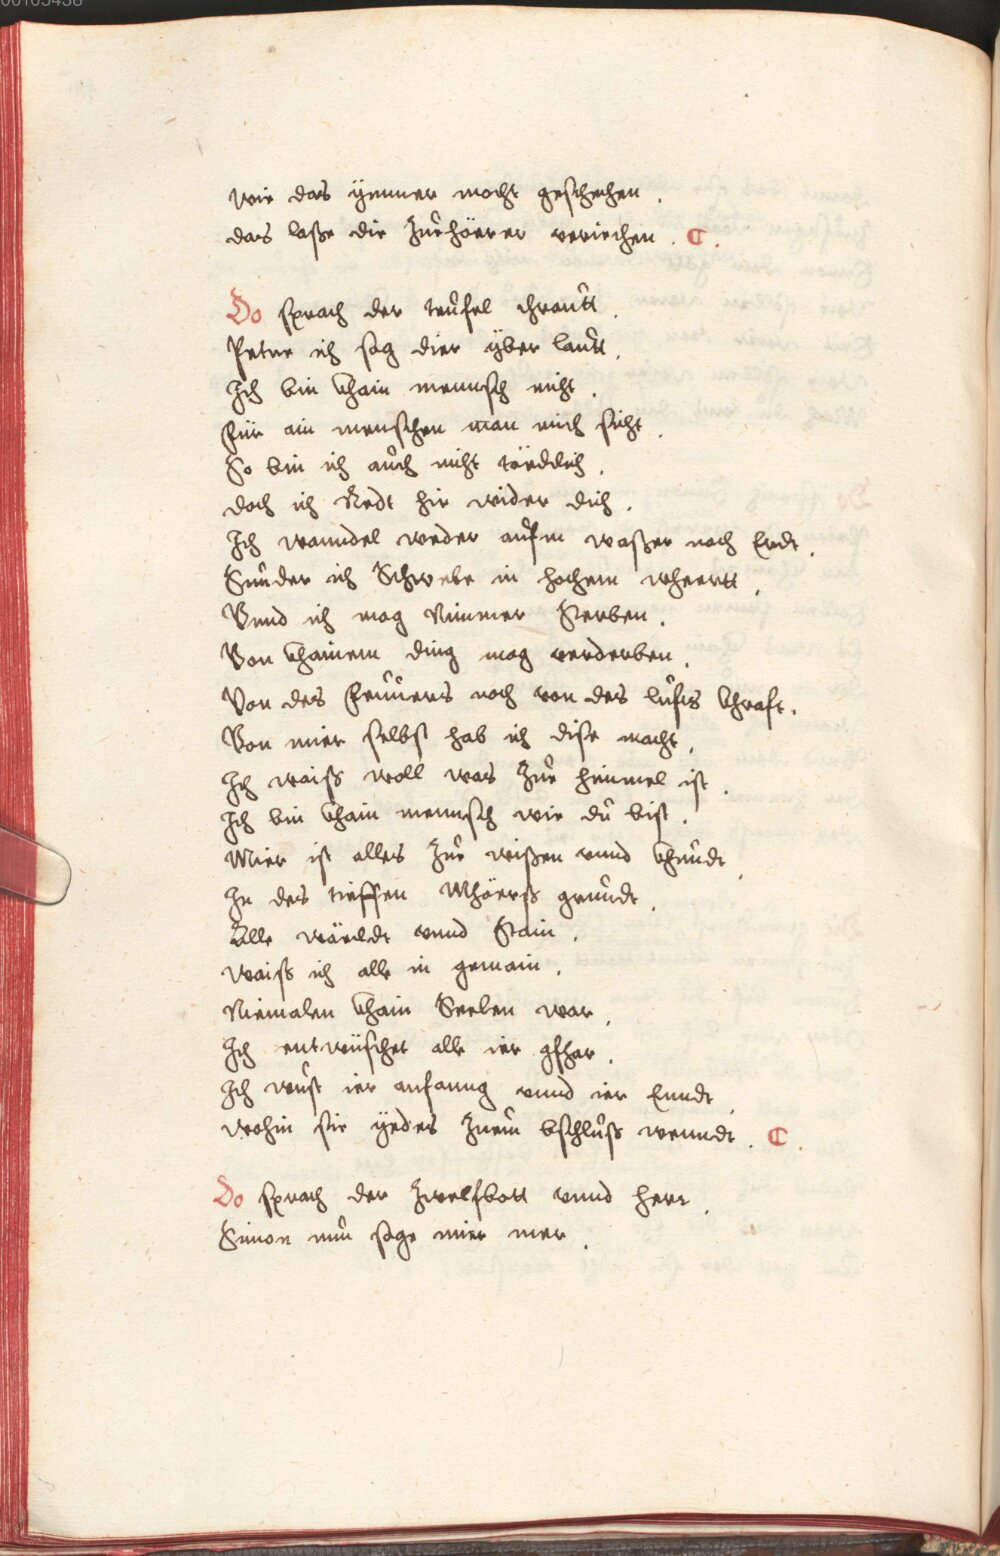 wie das ÿmmer mocht geschehen .
das laße die Zuhörer veriechen . C .
Do sprach der teufel chrautt .
Peter ich sag dier yber lautt .
Ich bin khain mennsch nicht .
Für ain menschen man mich sicht .
So bin ich auch nicht tördlich .
doch ich Redt hie wider dich .
Ich wanndel weder aufm waßer noch Erdt .
Sunder ich Schwebe in hochem wheertt .
Vnnd ich mag Nimmer Sterben .
Von khainem ding mag verderben .
Von des Feuuers noch von des lufts khraft .
Von mier selbst hab ich dise macht .
Ich waiß woll was Zue himmel ist .
Ich bin khain mennsch wie du bist .
Mier ist alles Zue wißen vnnd khundt
In des tieffen Mhörß grundt .
Alle wäeldt vnnd Stain .
waiß ich alle in gemain .
Niemalen khain Seelen war .
Ich entwüschet alle ier gfhar .
Ich wust ier anfanng vnnd ier Enndt .
wohin sie yedes Zuem bschluß wenndt . C .
Do sprach der Zwelfbott vnnd herr .
Simon nun sage mier mer .